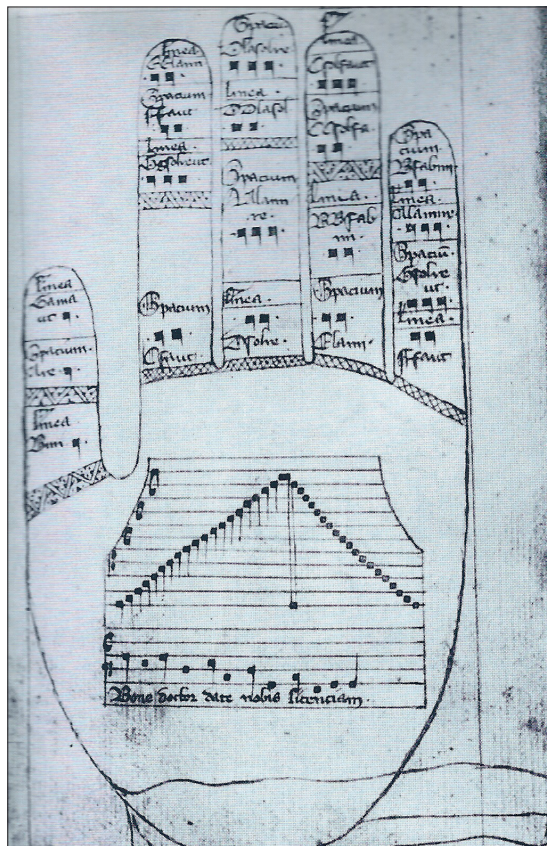 linea
Gama
ut
Spacium
Are
linea
Bmi
linea
Elami
Spacium
ffaut
linea
Gsolreut
Spacium
Cfaut
Spaciū
Dlasolre
linea
DDlasol
Spacium
Alami
re
linea
Dsolre
linea
Csolfaut
Spacium
CCsolfa
linea
BBfab
mi
Spacium
Elami
Spa
cium
Bfabmi
linea
Alamire
Spaciū
Gsolre
ut
linea
ffaut
Bone doctor date nobis licenciam